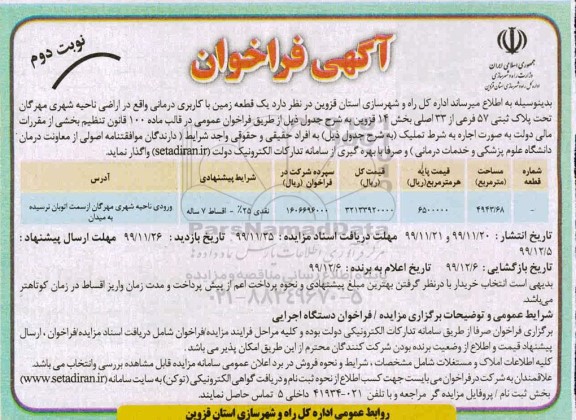 نوبت دوم
آگهی فراخوان
جمهوری اسلامی ایران
وزارت راه و شهرسازی
اداره کل راه و شهرسازی استان قزوین
بدینوسیله به اطلاع میرساند اداره کل راه و شهرسازی استان قزوین در نظر دارد یک قطعه زمین با کاربری درمانی واقع در اراضی ناحیه شهری مهرگان
تحت پلاک ثبتی ۵۷ فرعی از ۳۳ اصلی بخش ۱۴ قزوین به شرح جدول ذیل از طریق فراخوان عمومی در قالب ماده ۱۰۰ قانون تنظیم بخشی از مقررات
مالی دولت به صورت اجاره به شرط تملیک (به شرح جدول ذیل) به افراد حقیقی و حقوقی واجد شرایط ( دارندگان موافقتنامه اصولی از معاونت درمان
دانشگاه علوم پزشکی و خدمات درمانی ) و صرفا با بهره گیری از سامانه تدارکات الکترونیک دولت (setadiran.ir) واگذار نماید.
شماره قطعه	مساحت (مترمربع)	قیمت پایه هرمترمربع(ریال)	قیمت کل (ریال)	سپرده شرکت در فراخوان (ریال)	شرایط پیشنهادی	آدرس
-	۴۹۴۳/۶۸	۶۵۰۰۰۰۰	۳۲۱۳۳۹۲۰۰۰۰	۱۶۰۶۶۹۶۰۰۰	نقدی ۲۵٪ - اقساط ۷ ساله	ورودی ناحیه شهری مهرگان ازسمت اتوبان نرسیده به میدان
تاریخ انتشار : ۹۹/۱۱/۲۰ و ۹۹/۱۱/۲۱ مهلت دریافت اسناد مزایده : ۹۹/۱۱/۲۵ تاریخ بازدید : ۹۹/۱۱/۲۶ مهلت ارسال پیشنهاد :
۹۹/۱۲/۵
تاریخ بازگشایی : ۹۹/۱۲/۶ تاریخ اعلام به برنده : ۹۹/۱۲/۶
بدیهی است انتخاب خریدار با درنظر گرفتن بهترین مبلغ پیشنهادی و نحوه پرداخت اعم از پیش پرداخت و مدت زمان واریز اقساط در زمان کوتاهتر
می‌باشد.
شرایط عمومی و توضیحات برگزاری مزایده / فراخوان دستگاه اجرایی
برگزاری فراخوان صرفا از طریق سامانه تدارکات الکترونیکی دولت بوده و کلیه مراحل فرایند مزایده/فراخوان شامل دریافت اسناد مزایده/فراخوان ، ارسال
پیشنهاد قیمت و اطلاع از وضعیت برنده بودن شرکت کنندگان محترم از این طریق امکان پذیر می باشد.
کلیه اطلاعات املاک و مستغلات شامل مشخصات ، شرایط و نحوه فروش در برد اعلان عمومی سامانه مزایده قابل مشاهده بررسی وانتخاب می باشد.
علاقمندان به شرکت درفراخوان می بایست جهت کسب اطلاع از نحوه ثبت نام و دریافت گواهی الکترونیکی (توکن) به سایت سامانه (www.setadiran.ir)
بخش ثبت نام / پروفایل مزایده گر مراجعه و یا تلفن ۰۲۱-۴۱۹۳۴ داخلی ۵ تماس حاصل نمایند.
روابط عمومی اداره کل راه و شهرسازی استان قزوین
ParsNamadData
۰۲۱-۸۸۳۴۹۶۷۰-۵